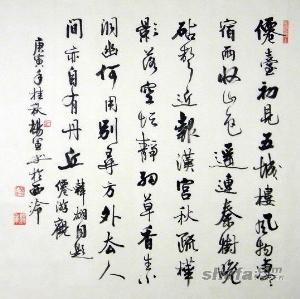 僊臺初見五城樓風物凄凄
宿雨收山色遥連秦樹晚
砧聲近報漢宮秋疏
影落空壇靜細草香生小
洞幽何用別尋方外去人
間亦自有丹丘
韓翃同題
僊游觀
庚寅年桂秋楊軍於西泠